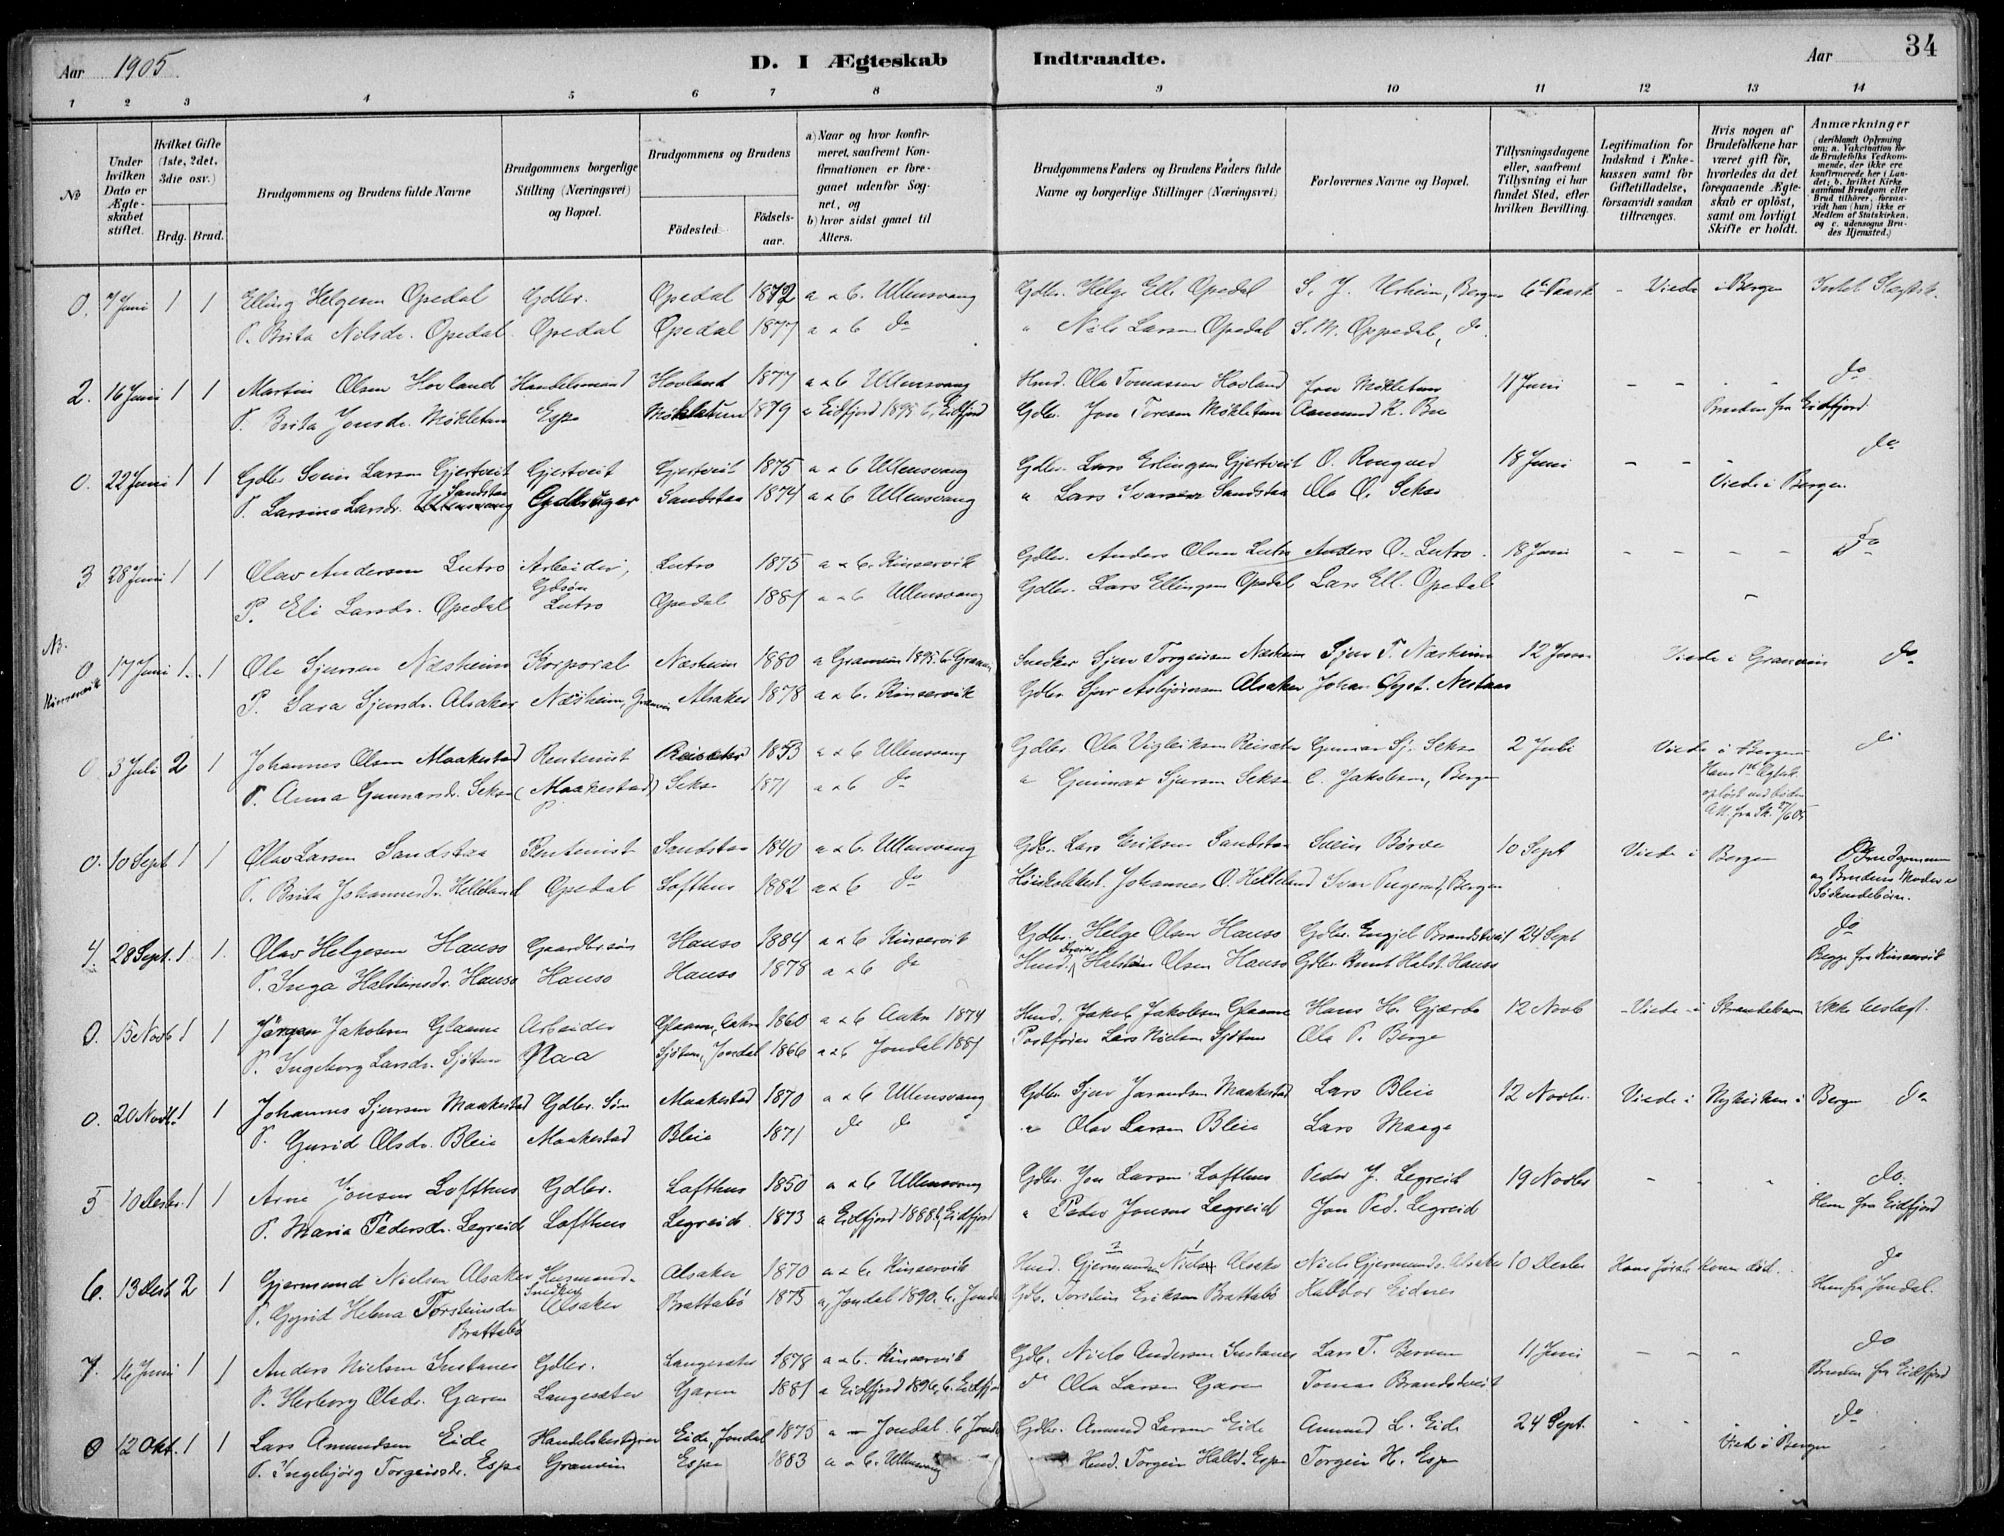 Aar 1905.
D. I Ægteskab Indtraadte.
Aar
34
1 2 3 4 5 6 7 8 9 10 11 12 13 14
No
Under hvilken Dato er Ægteskabet stiftet.
Hvilket Gifte (1ste, 2det, 3die osv.)
Brdg. Brud.
Brudgommens og Brudens fulde Navne
Brudgommens borgerlige Stilling (Næringsvei) og Bopæl.
Brudgommens og Brudens
Födested
Födselsaar.
a) Naar og hvor konfirmeret, saafremt Konfirmationen er foregaaet udenfor Sognet, og
b) hvor sidst gaaet til Alters.
Brudgommens Faders og Brudens Faders fulde Navne og borgerlige Stillinger (Næringsvei)
Forlovernes Navne og Bopæl.
Tillysningsdagene eller, saafremt Tillysning ei har fundet Sted, efter hvilken Bevilling.
Legitimation for Indskud i Enkekassen samt for Giftetilladelse, forsaavidt saadan tiltrænges.
Hvis nogen af Brudefolkene har været gift för, hvorledes da det foregaaende Ægteskab er oplöst, samt om lovligt Skifte er holdt.
Anmærkninger
(deriblandt Oplysning om: a. Vakcination for de Brudefolks Vedkommende, der ikke ere konfirmerede her i Landet; b. hvilket Kirkesamfund Brudgom eller Brud tilhörer, forsaavidt han (hun) ikke er Medlem af Statskirken, og c. udensogns Brudes Hjemsted.)
0. 7 Juni 1 1 Elling Helgesen Opedal Gdbr. Opedal 1872 a & b. Ullensvang Gdbr. Helge Ell. Opedal S. J. Urheim, Bergen - Viede i Bergen Intet Slegtsk.
P. Brita Nilsdr. Opedal Opedal Opedal 1877 a & b do " Nils Larsen Opedal S. M. Oppedal, do.
2. 16 Juni 1 1 Martin Olsen Hovland Handelsmand Hovland 1877 a & b Ullensvang Hmd. Ola Tomassen Hovland Jon Mökletun 11 Juni - - - - do
P. Brita Jonsdr. Mökletun Espe Mökletun 1879 a Eidfjord 1895 b. Eidfjord Gdbr. Jon Toresen Mökletun Aamund K. Bu Bruden fra Eidfjord
0. 22 Juni 1 1 Gdbr Svein Larsen Gjertveit Gjertveit Gjertveit 1875 a & b Ullensvang Gdbr. Lars Erlingsen Gjertveit O. Rongved 18 Juni - - - do
P. Larsina Larsdr. Sandstaa Gdbruger Sandstaa 1874 a & b Ullensvang " Lars Ivarsen Sandstaa Ola O. Sekse Viede i Bergen.
3 28 Juni 1 1 Olav Andersen Lutro Arbeider, Lutro 1875 a & b. Kinservik Gdbr. Anders Olsen Lutro Anders O. Lutro. 18 Juni - - - - do
Gdsön
P. Eli Larsdr. Opedal Lutro Opedal 1881 a & b Ullensvang Gdbr. Lars Ellingsen Opedal Lars Ell. Opedal -
NB.
0 17 Juni 1. 1 Ole Sjursen Næsheim Korporal Næsheim 1880 a Granvin 1895. b. Granvin Snedker Sjur Torgeirsen Næsheim Sjur T. Næsheim Viede i Granvin do
Kinservik
P. Sara Sjursdr. Alsaker Næsheim, Granvin Alsaker 1878 a & b. Kinservik Gdbr. Sjur Asbjörnsen Alsaker Johan Nestaas
0 3 Juli 2 1 Johannes Olsen Maakestad Rentenist Reisæter 1853 a & b Ullensvang Gdbr. Ola Vigleiksen Reisæter Gunnar Sj. Sekse 2 Juli Viede i Bergen do
P. Anna Gunnarsdr. Sekse (Maakestad) Sekse 1871 a & b do " Gunnar Sjursen Sekse C. Jakobsen, Bergen Hans 1ste Egtsk. oplöst ved Döden
Att. fra Sk. 27/6 05
0. 10 Sept 1 1 Olav Larsen Sandstaa Rentenist Sandstaa 1840 a & b. Ullensvang Gdb. Lars Eriksen Sandstaa Svein Börve 10 Sept Viede i Bergen Brudgommen
P. Brita Johannesdr. Helleland Opedal Lofthus 1882 a & b do Johannes O. Helleland Ivar Bergen og Brudens Moder er Södskendebörn.
4. 28 Sept. 1 1. Olav Helgesen Hauso Gaardbr.sön Hauso 1884 a & b Kinservik Gdbr. Helge Olsen Hauso Gdbr. Engjel Brandstveit 24 Sept do
P. Inga Halstensdr. Hauso Hauso Hauso 1878 a & b do Hmd. Halsten Olsen Hauso Gdbr. Knut Halst. Hauso Begge fra Kinservik
0. 15 Novb 1 1 Jörgen Jakobsen Glaame Arbeider Glaame, Aakre 1860 a & b Aakre 1874 Hmd. Jakob Jakobsen Glaame Hans H. Gjærde 12 Novb - Viede i Strandebarm Ikke beslegt.
P. Ingeborg Larsdr. Sjötun Naa Sjötun, Jondal 1866 a & b Jondal 1881 Postförer Lars Nielsen Sjötun Ola P. Berge
0. 20 Novb. 1 1 Johannes Sjursen Maakestad Gdbr. Sön Maakestad 1870 a & b Ullensvang Gdbr. Sjur Jarandsen Maakestad Lars Bleie 12 Novbr. Viede i Nykirken i Bergen do
P. Gurid Olsdr. Bleie Maakestad Bleie 1871 do do " Olav Larsen Bleie Lars Maage
5 10 Desbr. 1 1 Arne Jonsen Lofthus Gdbr. Lofthus 1850 a & b Ullensvang Gdbr. Jon Larsen Lofthus Peder J. Legreid 19 Novbr - - - do.
P. Maria Pedersdr. Legreid Lofthus Legreid. 1873 a Eidfjord 1888 b. Eidfjord " Peder Jonsen Legreid Jon Ped. Legreid Hun fra Eidfjord
6. 13 Desb 2 1 Gjermund Nielsen Alsaker Husmand- Alsaker 1870 a & b. Kinservik Hmd. Gjermundsen Niels Alsaker Niels Gjermunds. Alsaker 10 Desbr Hans förste Kone död. do
Snedker
P. Gyrid Helena Torsteinsdr Alsaker Brattabö 1875 a, Jondal 1890. b. Jondal Gdb. Torstein Eriksen Brattabö Halldor Eidnes Hun fra Jondal.
Brattabö
7. 16 Juni 1 1 Anders Nielsen Instanes Gdbr. Langesæter 1878 a & b. Kinservik Gdb. Niels Andersen Instanes Lars T. Berven 11 Juni - - - do
P. Herborg Olsdr. Garen Langesæter Garen 1881 a Eidfjord 1896, b. Eidfjord do Ola Larsen Garen Tomas Brandstveit Bruden fra Eidfjord
0 12 Okt. 1 1 Lars Amundsen Eide Handelsbestyrer Eide, Jondal 1875 a - Jondal b Jondal Gdbr. Amund Larsen Eide Amund L. Eide 24 Sept. - - - do
P. Ingebjörg Torgeirsdr. Espe Granvin Espe 1883 a & b. Ullensvang Hmd. Torgeir Halld. Espe Torgeir H. Espe Vied i Bergen